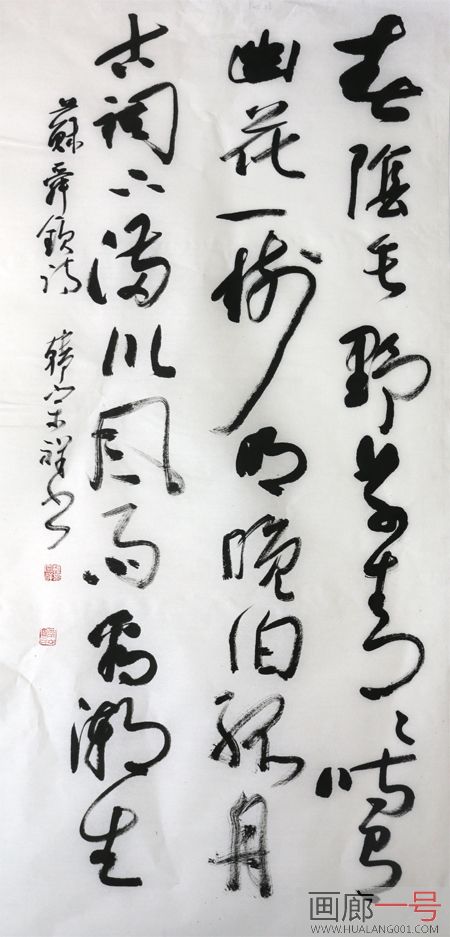 春陰垂野草青〻時有
幽花一樹明晚泊孤舟
古祠下滿川風雨看潮生
蘇舜欽詩 韓祥书
画廊一号
WWW.HUALANG001.COM